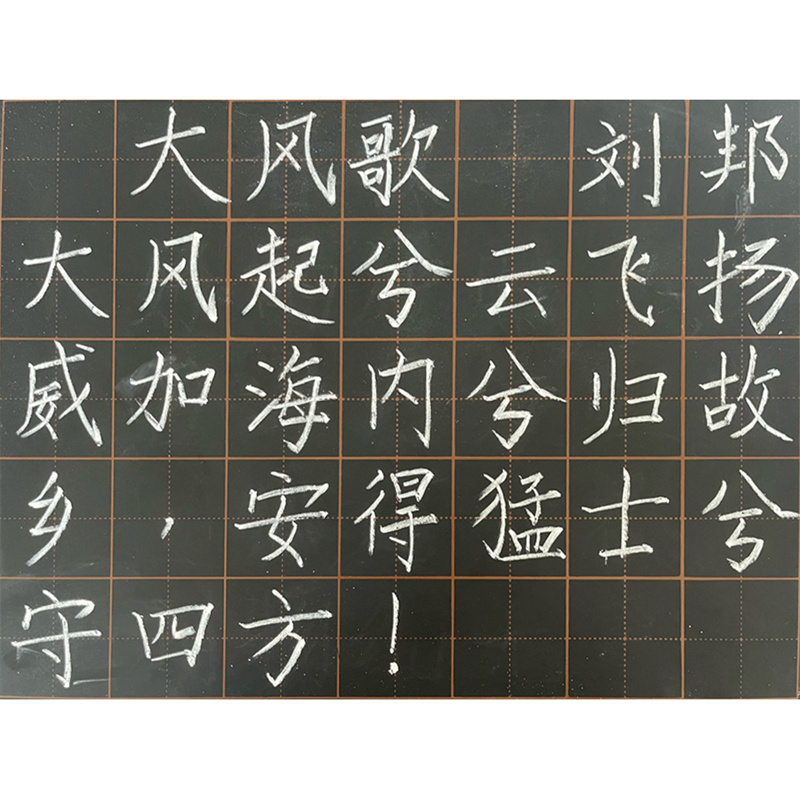 大风歌 刘邦
大风起兮云飞扬
威加海内兮归故
乡,安得猛士兮
守四方!